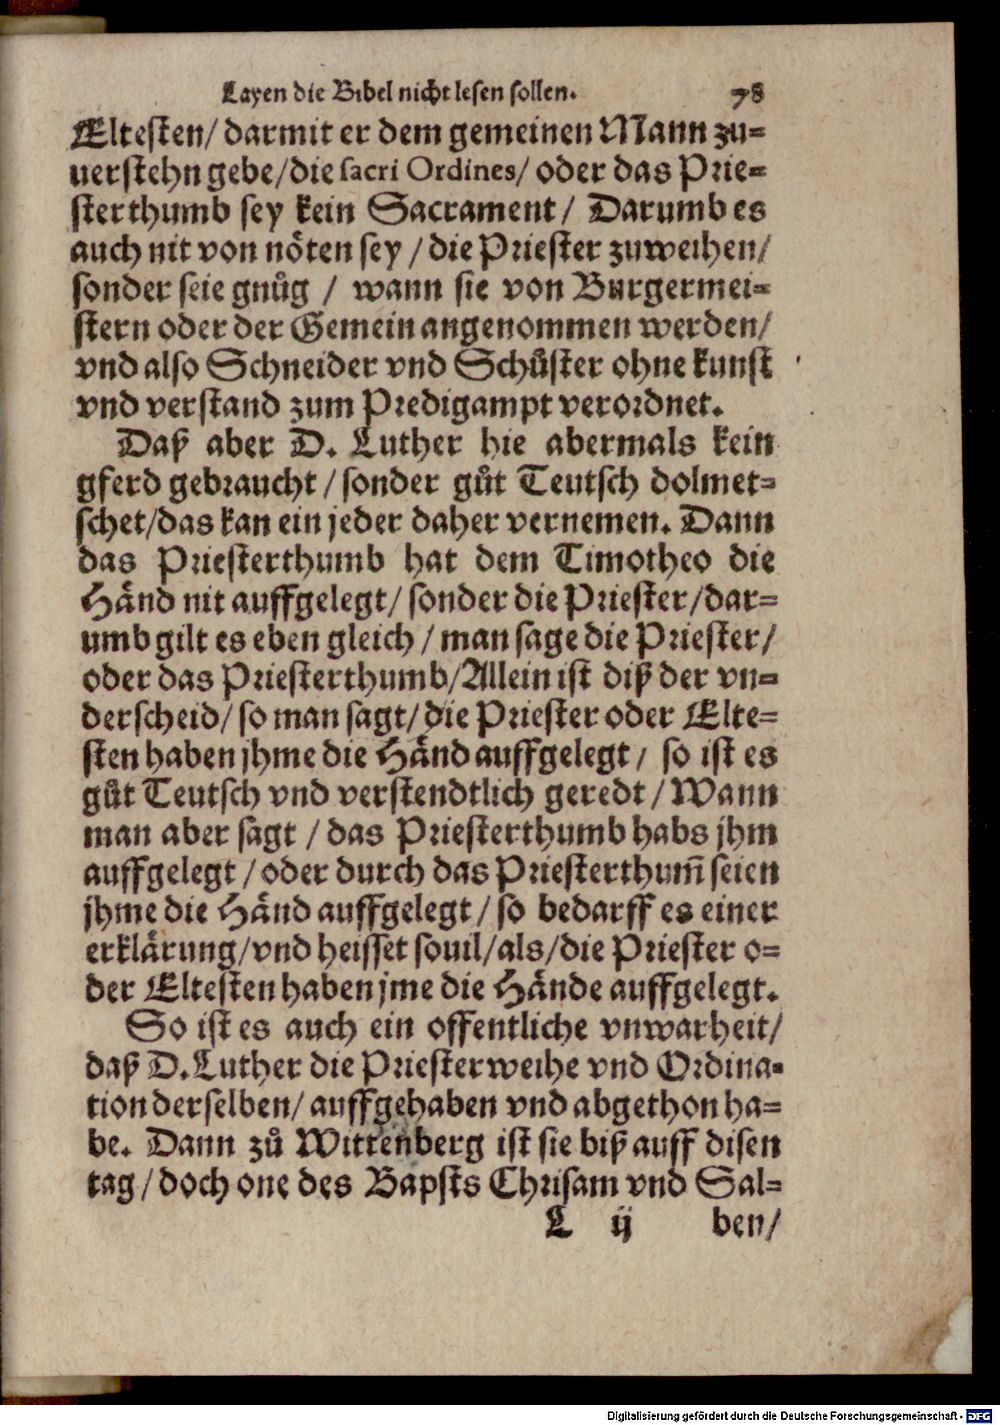 Layen die Bibel nicht lesen sollen. 78
Eltesten/ darmit er dem gemeinen Mann zu-
uerstehn gebe/die sacri Ordines/ oder das Prie-
sterthumb sey kein Sacrament/ Darumb es
auch nit von nöten sey / die Priester zuweihen/
sonder seie gnůg / wann sie von Burgermei-
stern oder der Gemein angenommen werden/
vnd also Schneider vnd Schůster ohne kunst
vnd verstand zum Predigampt verordnet.
Daß aber D. Luther hie abermals kein
gferd gebraucht / sonder gůt Teutsch dolmet-
schet/das kan ein jeder daher vernemen. Dann
das Priesterthumb hat dem Timotheo die
Händ nit auffgelegt/ sonder die Priester/dar-
umb gilt es eben gleich / man sage die Priester/
oder das Priesterthumb/Allein ist diß der vn-
derscheid/ so man sagt/ die Priester oder Elte-
sten haben jhme die Händ auffgelegt/ so ist es
gůt Teutsch vnd verstendtlich geredt / Wann
man aber sagt / das Priesterthumb habs jhm
auffgelegt / oder durch das Priesterthum̃ seien
jhme die Händ auffgelegt / so bedarff es einer
erklärung/vnd heisset souil/als/die Priester o-
der Eltesten haben jme die Hände auffgelegt.
So ist es auch ein offentliche vnwarheit/
daß D. Luther die Priesterweihe vnd Ordina-
tion derselben/ auffgehaben vnd abgethon ha-
be. Dann zů Wittenberg ist sie biß auff disen
tag / doch one des Bapsts Chrisam vnd Sal-
L ij ben/
Digitalisierung gefördert durch die Deutsche Forschungsgemeinschaft - DFG